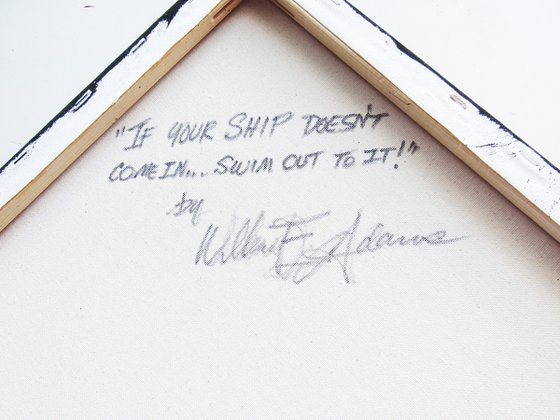 "IF YOUR SHIP DOESN'T
COME IN... SWIM OUT TO IT!"
by
William E. Adams